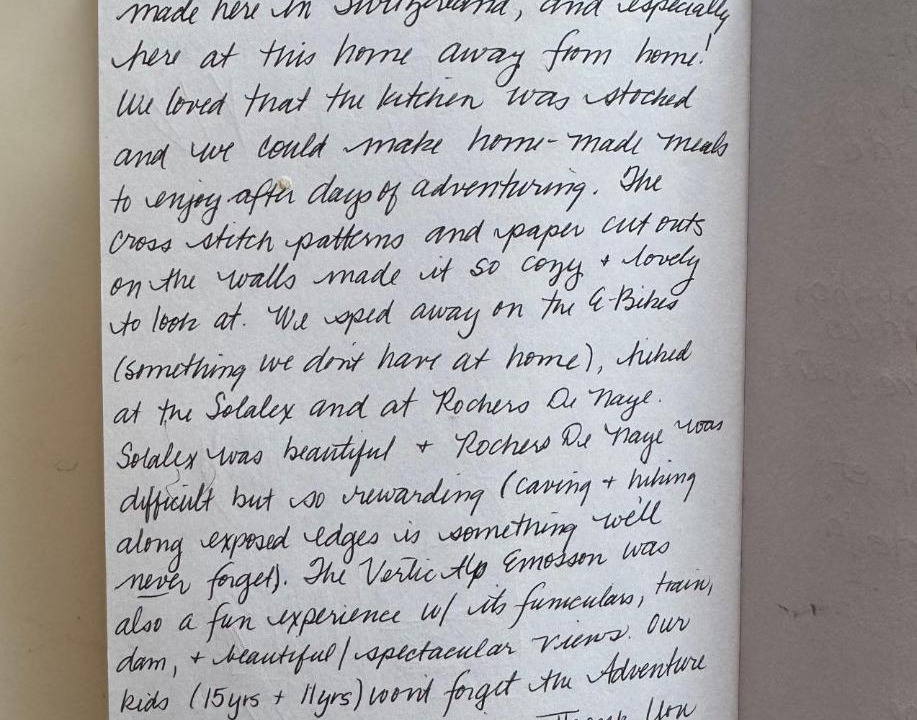 made here in Switzerland, and especially
here at this home away from home!
We loved that the kitchen was stocked
and we could make home-made meals
to enjoy after days of adventuring. The
cross stitch patterns and paper cut outs
on the walls made it so cozy + lovely
to look at. We sped away on the E-Bikes
(something we don't have at home), hiked
at the Solalex and at Rochers De Naye.
Solalex was beautiful + Rochers De Naye was
difficult but so rewarding (caving + hiking
along exposed edges is something we'll
never forget). The VerticAlp Emosson was
also a fun experience w/ its funiculars, train,
dam, + beautiful/spectacular views. Our
kids (15yrs + 11yrs) won't forget the Adventure
Thank You